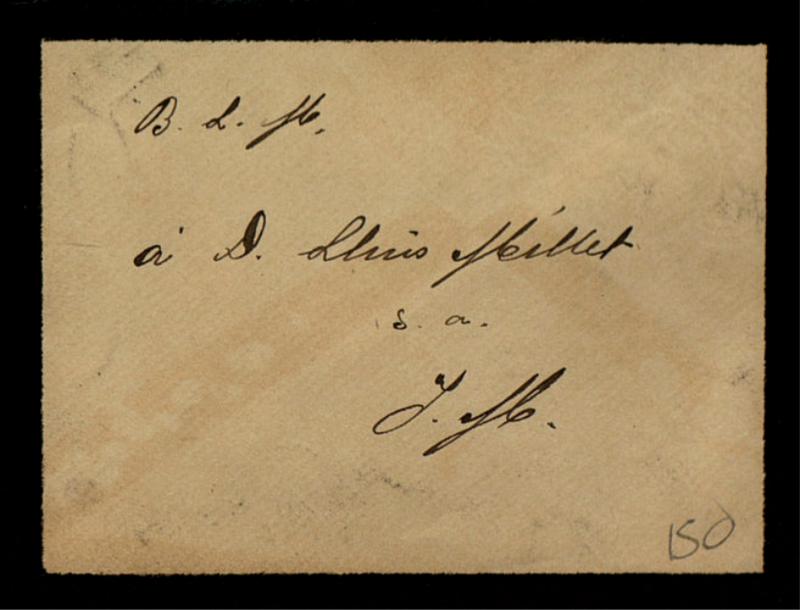 B. L. M.
à D. Lluis Millet
s. a.
J. M.
150